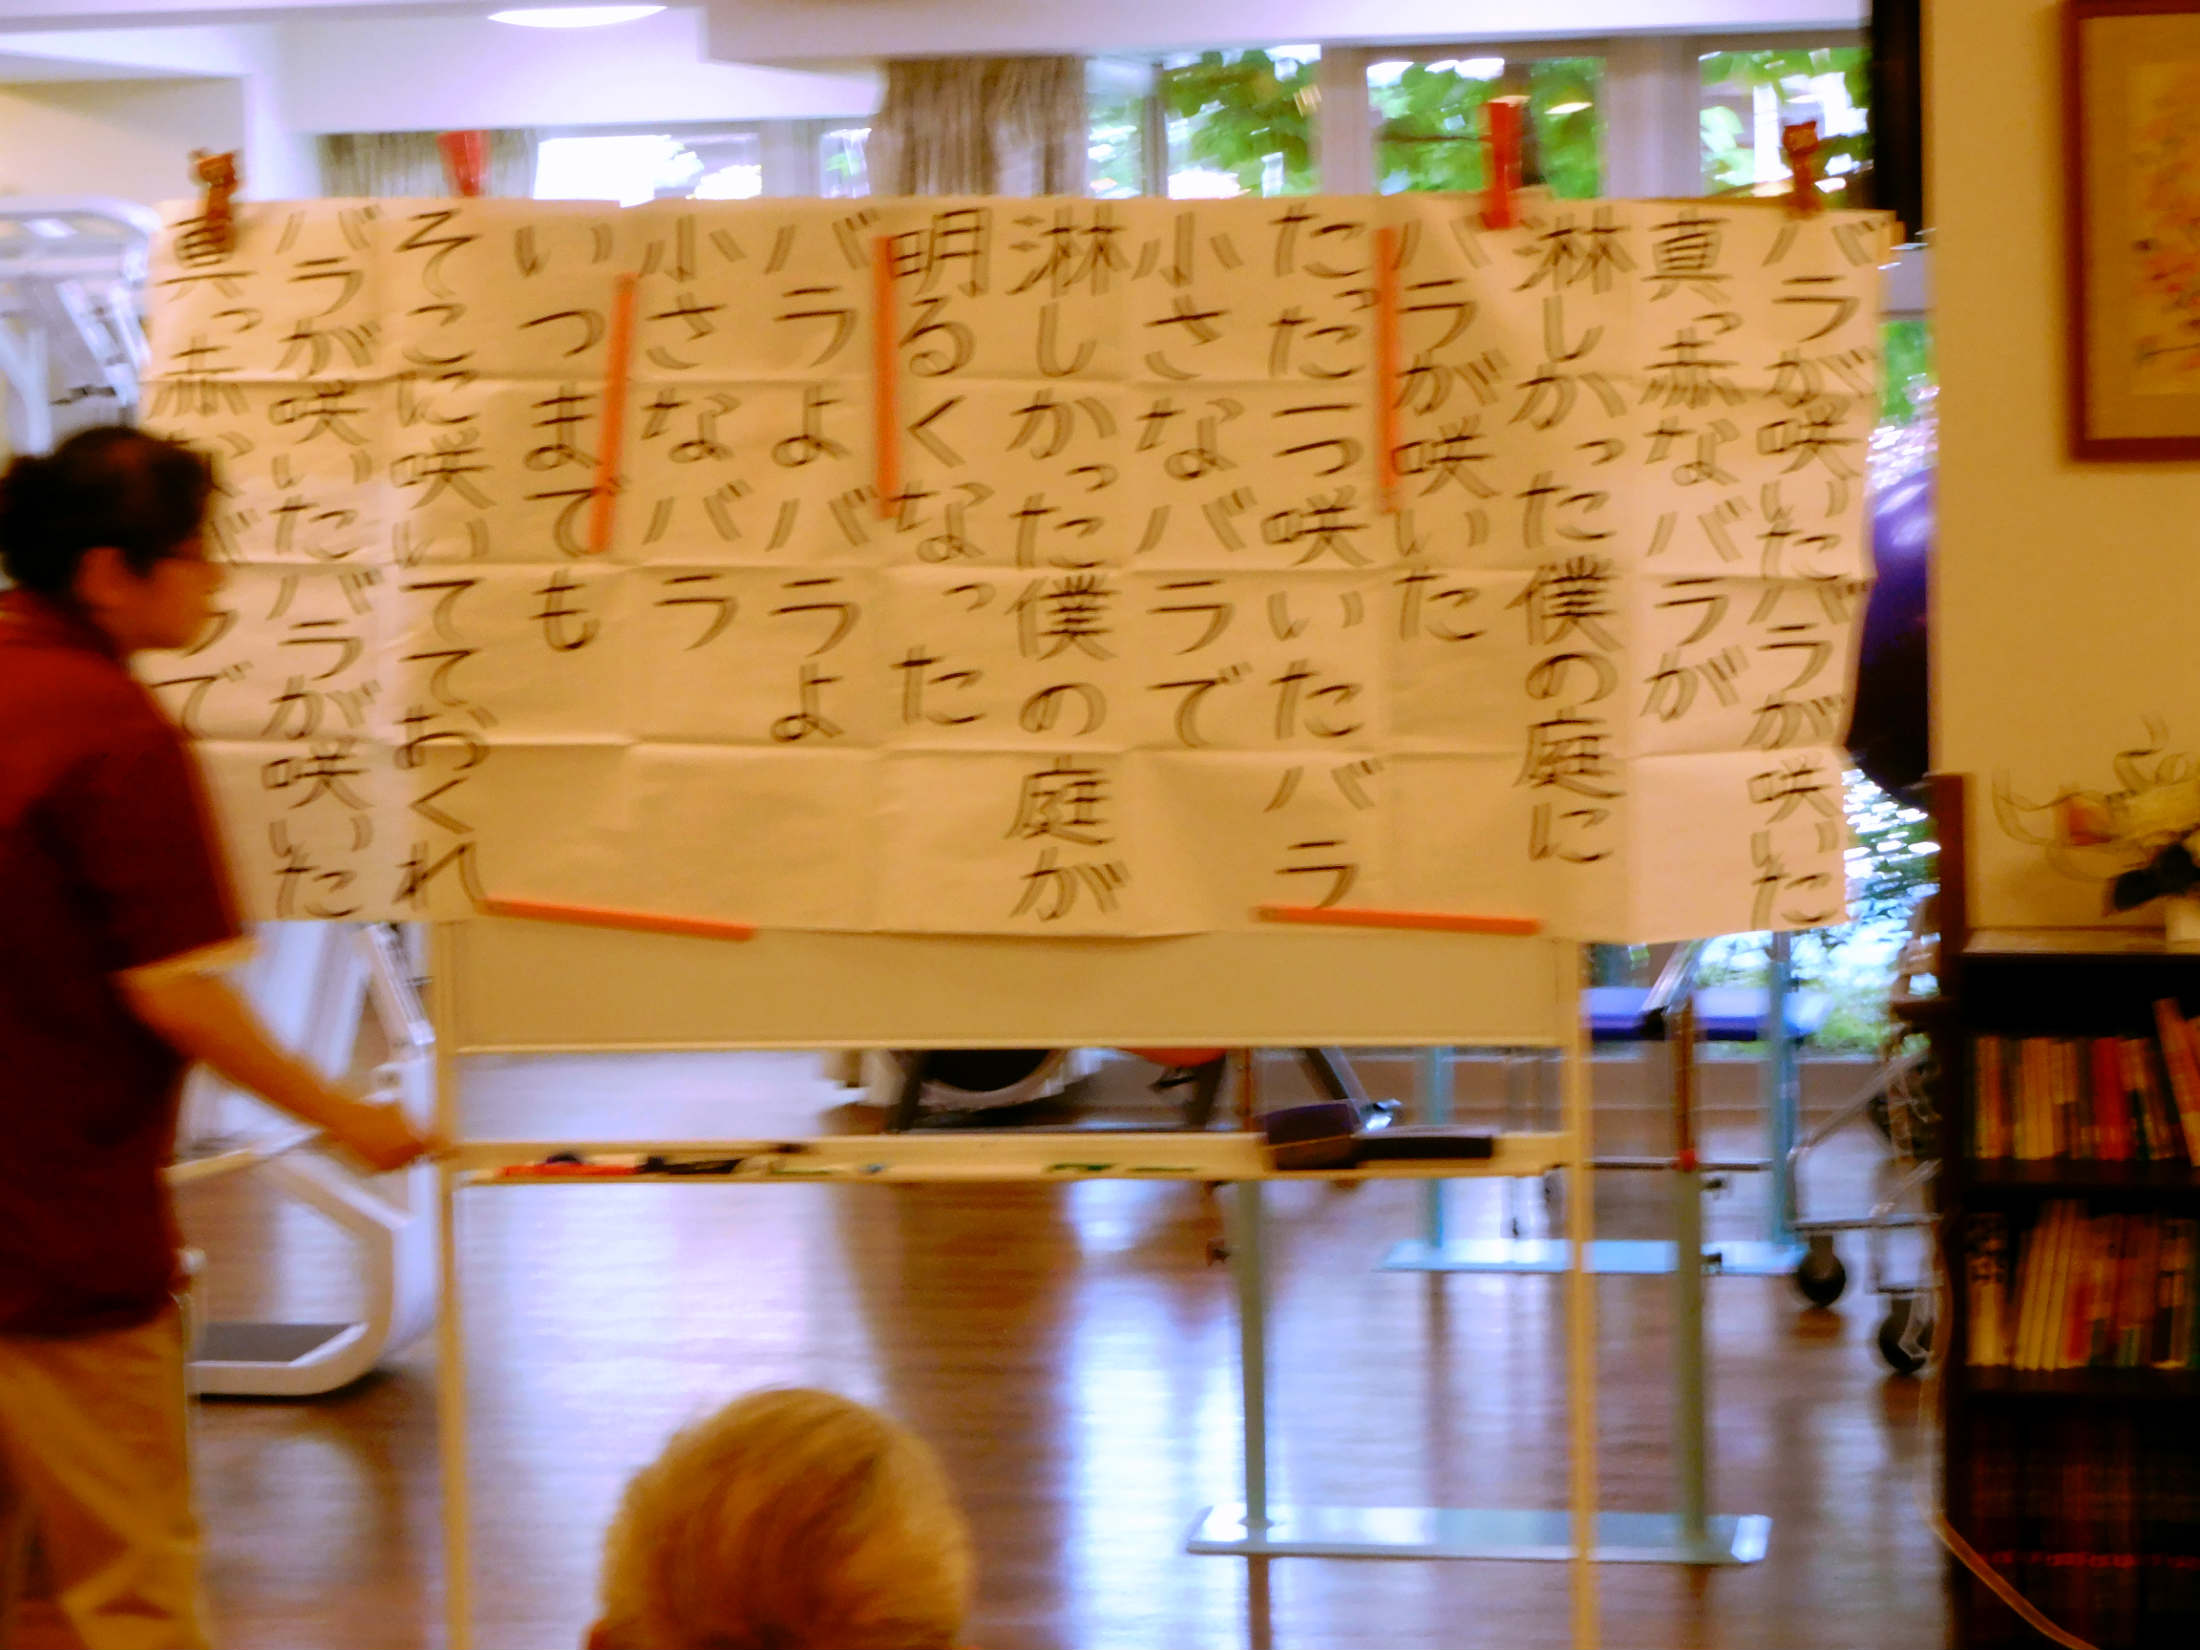 バラが咲いたバラが咲いた
真っ赤なバラが
淋しかった僕の庭に
バラが咲いた
たった一つ咲いたバラ
小さなバラで
淋しかった僕の庭が
明るくなった
バラよバラよ
小さなバラ
いつまでも
そこに咲いてておくれ
バラが咲いたバラが咲いた
真っ赤な